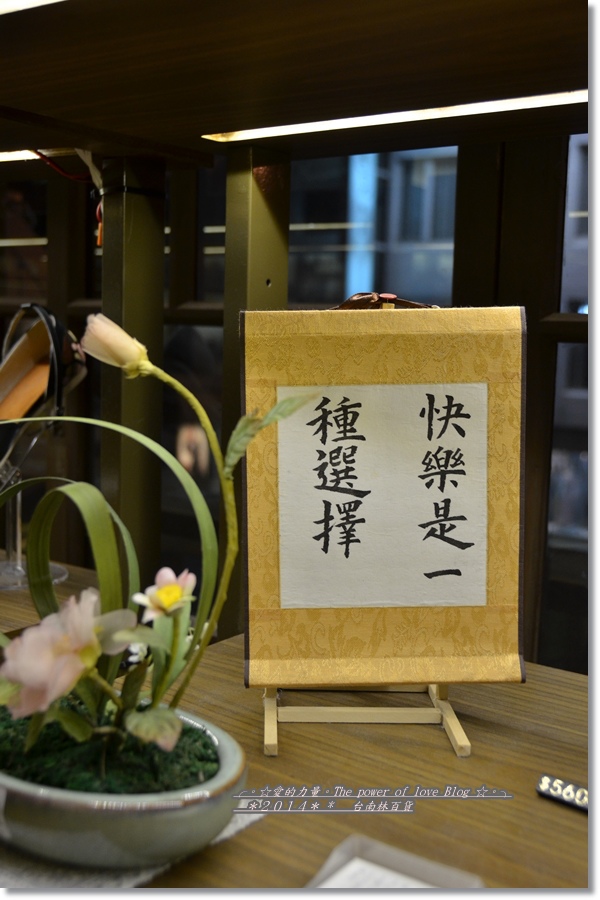 快樂是一
種選擇
$560
╭。☆愛的力量。The power of love Blog ☆。╮
＊2014＊＊ 台南林百貨